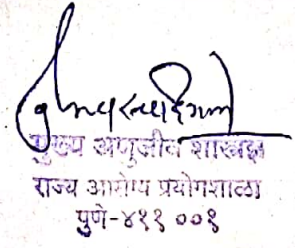 मुख्य अणुजीव शास्त्रज्ञ
राज्य आरोग्य प्रयोगशाळा
पुणे-४११ ००१